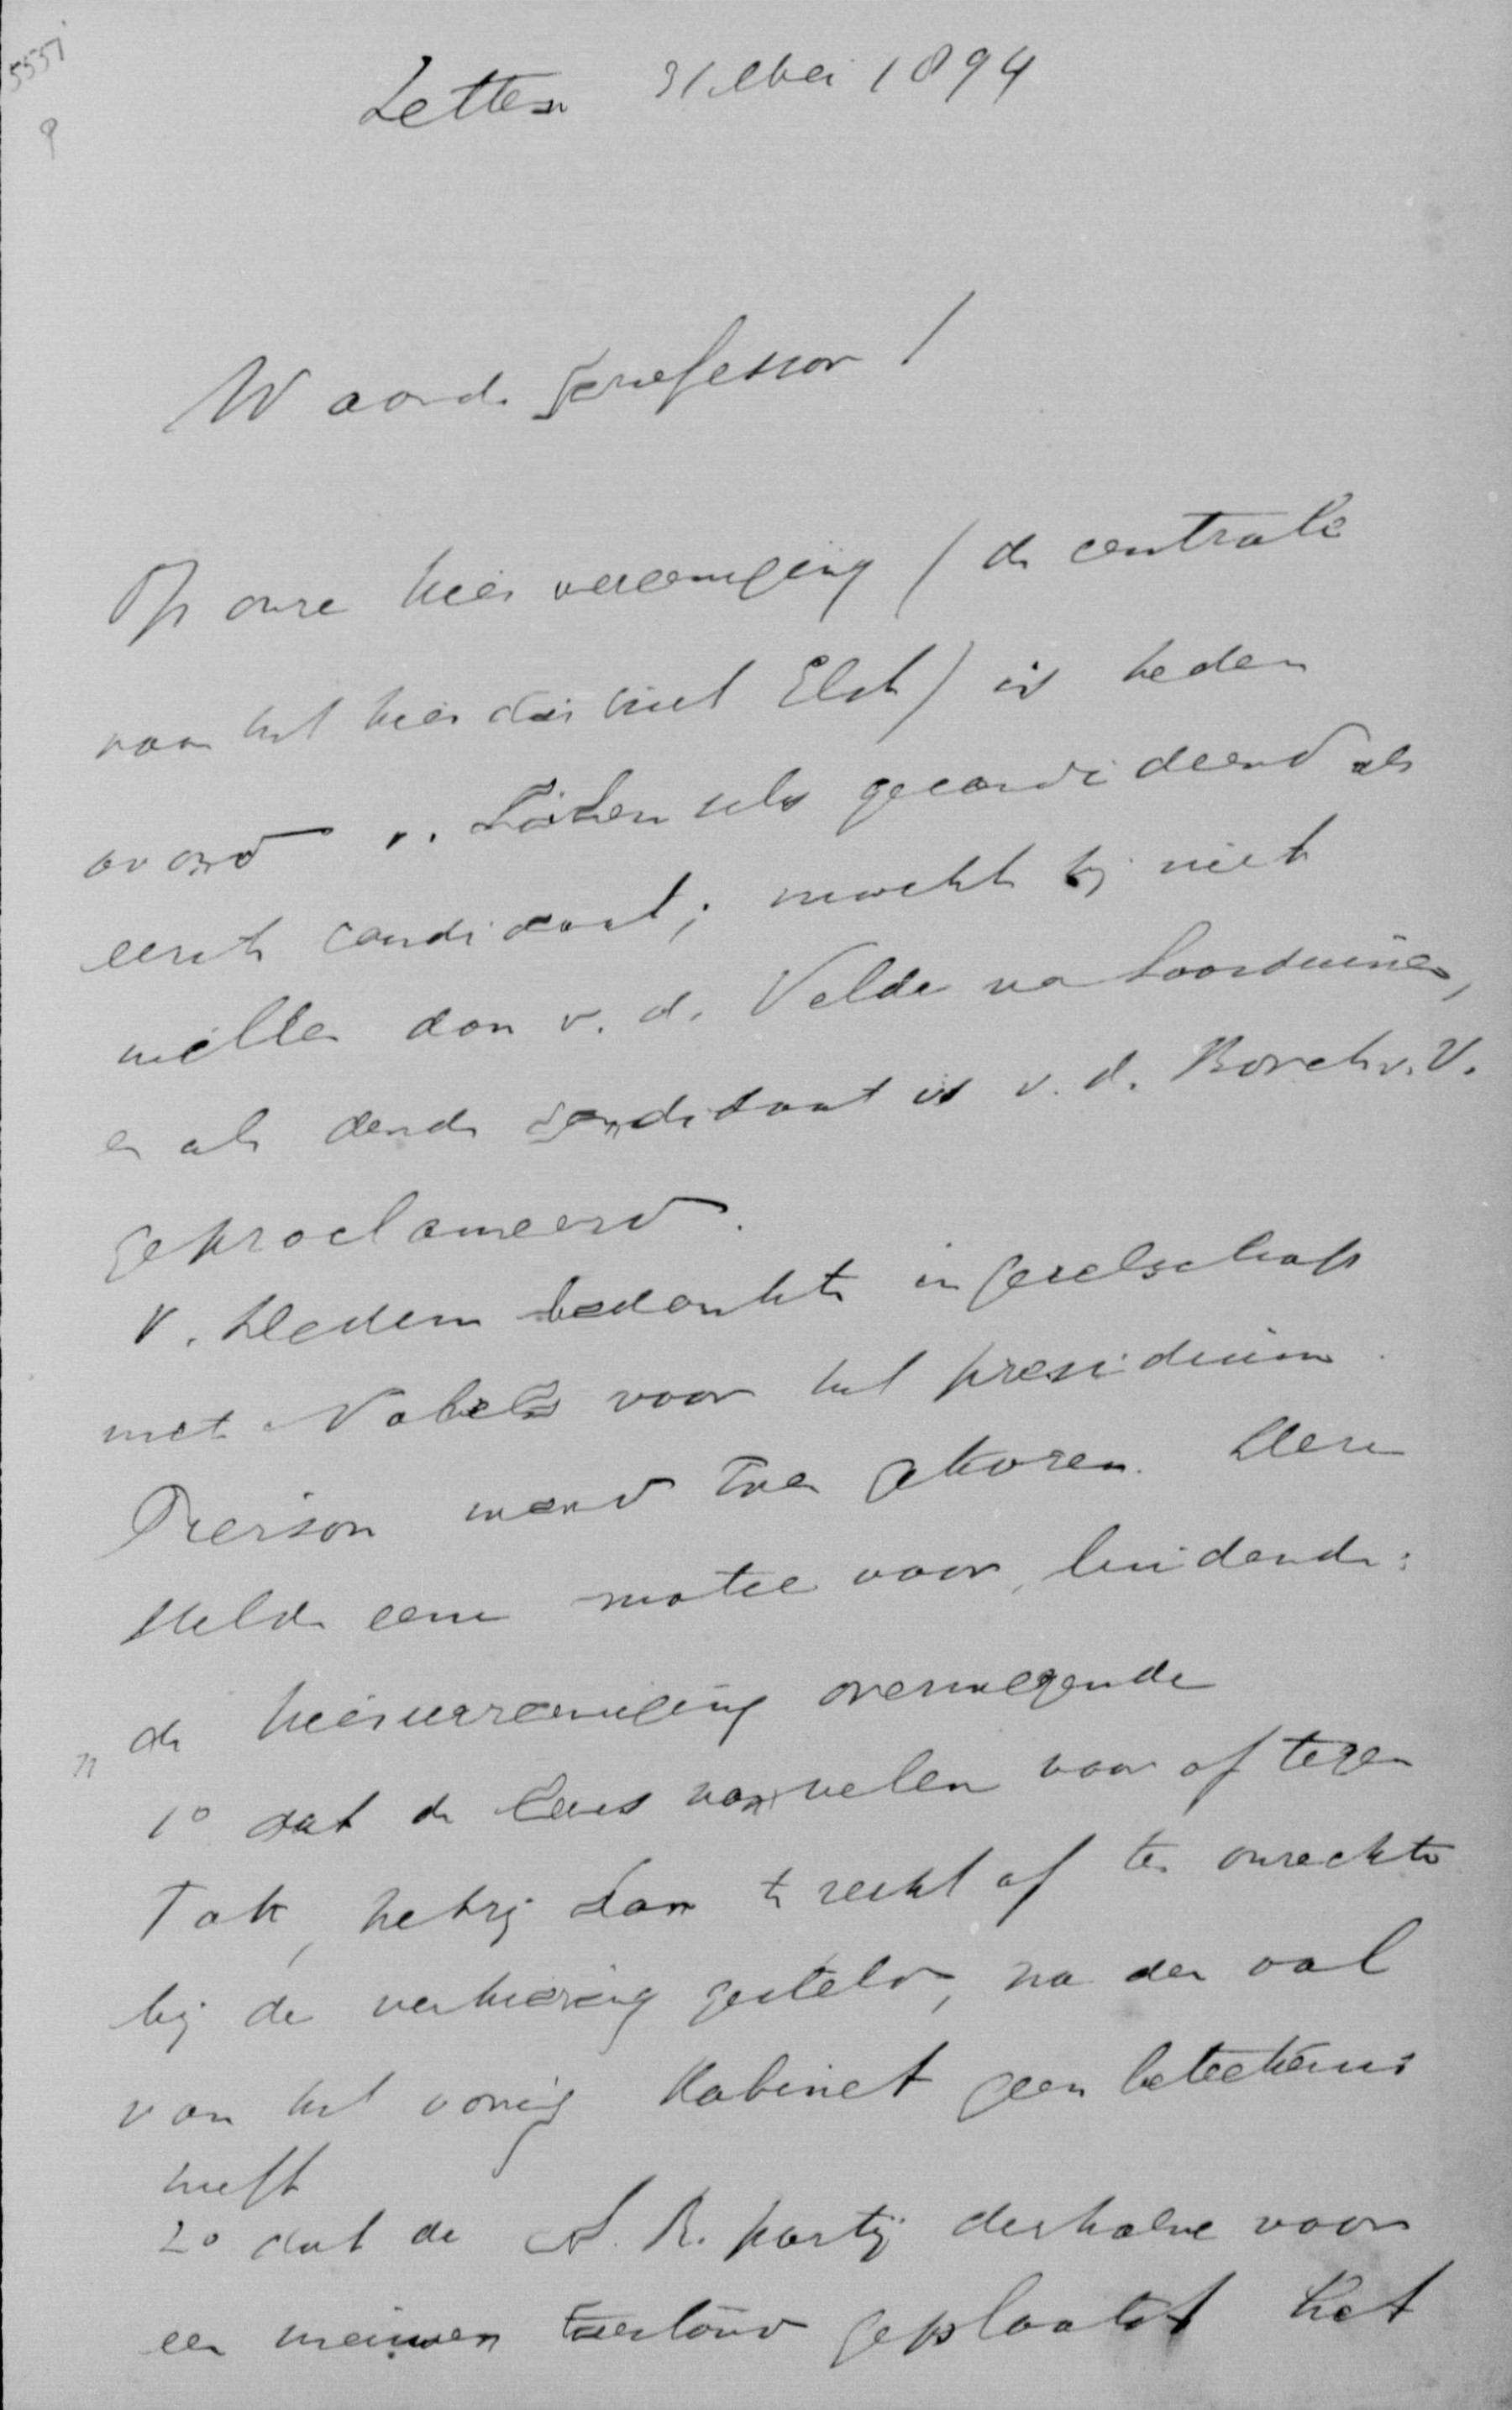 5557
9
Zetten 31 Mei 1894
Waarde Professor!
Op onze kiesvereeniging (de centrale
van het kiesdistrict Elst) is heden
avond v. Löben sels gecandideerd als
eerste candidaat; mocht hij niet
willen dan v. d. Velde va Loosduinen,
en als derde candidaat is v. d. Borch v. V.
geproclameerd.
V. bedankte in gezelschap
met voor het presidium.
Pierson werd toen gekozen. Deze
stelde eene motie voor, luidende:
„ de kiesvereeniging overwegende
1o dat de leus van velen voor of tegen
Tak, hetzij dan te recht of ten onrechte
bij de verkiezing gesteld, na den val
van het vorig Kabinet geen beteekenis
heeft
2o dat de A. R. partij derhalve voor
een nieuwen toestand geplaatst het